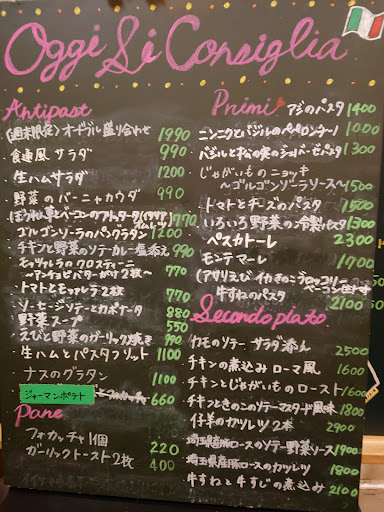 Oggi Si Consiglia
Antipast
(週末限定)オードブル盛り合わせ 1990
食連風サラダ 990
・生ハムサラダ 1200
・野菜のバーニャカウダ 990
770
ゴルゴンゾーラのパングラタン 1200
・チキンと野菜のソテーカレー塩添え 990
モッツァレラのクロスティーニ
～アンチョビバターがけ2枚～ 770
・トマトとモッツァレラ2枚 770
・ソーセージソテーとカポナータ 880
野菜スープ 550
えびと野菜のガーリック焼き 990
・生ハムとパスタフリット 1100
ナスのグラタン 1100
ジャーマンポテト 660
Pane
フォカッチャ1個 220
ガーリックトースト2枚 400
Primi
アジのパスタ 1400
ニンニクとバジルのペペロンチーノ 1000
バジルと松の実のジェノベーゼパスタ 1300
・じゃがいものニョッキ
～ゴルゴンゾーラソース～ 1500
トマトとチーズのパスタ 1500
・いろいろ野菜の冷製パスタ 1300
ペスカトーレ 2300
モンテマーレ 1700
(アサリえびイカきのこブロッコリー
牛すねのパスタ 2100
Secondo piato
カモのソテー サラダ添え 2500
チキンの煮込みローマ風 1600
チキンとじゃがいものロースト 1600
チキンときのこのソテーマスタード風味 1800
仔羊のカツレツ2本 2900
埼玉県産豚ロースのソテー野菜ソース 1900
埼玉県産豚ロースのカツレツ 1800
牛すねと牛すじの煮込み 2100